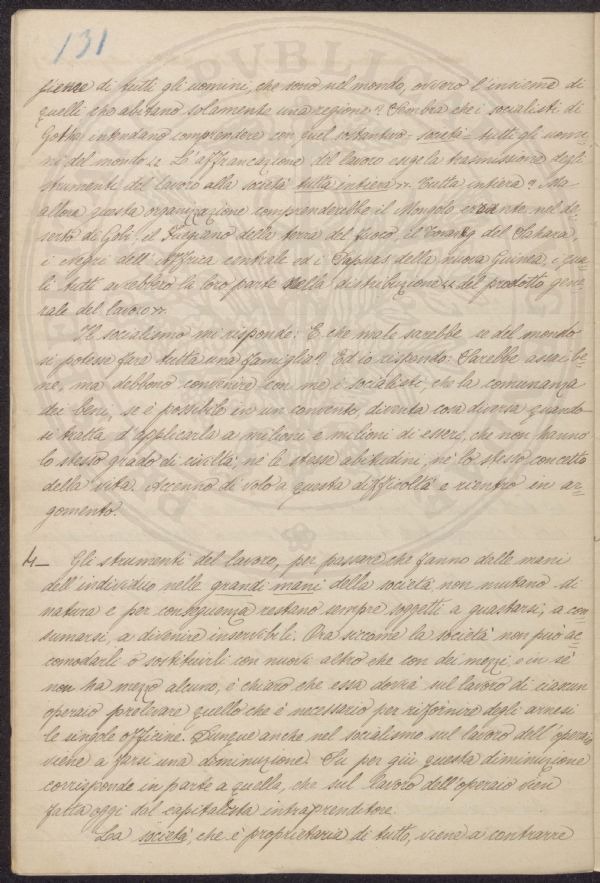 131
fiance di tutti gli uomini, che sono nel mondo, ovvero l'insieme di
quelli che abitano solamente una regione? Sembra che i socialisti di
Gotha intendano comprendere con quel costantivo = società = tutti gli uomi=
ni del mondo. « L'affrancazione del lavoro esige la trasmissione degli
strumenti del lavoro alla società tutta intiera ». Tutta intiera? Ma
allora questa organizzazione comprenderebbe il Mongolo errante nel de=
serto di Gobi, il Fuegiano della terra del fuoco, il Touareg del Sahara,
i negri dell'Affrica centrale ed i Papuas della nuova Guinea, i qua=
li tutti avrebbero la loro parte nella distribuzione « del prodotto gene=
rale del lavoro ».
Il socialismo mi risponde: E che male sarebbe se del mondo
si potesse fare tutta una famiglia? Ed io rispondo: Sarebbe assai be=
ne, ma debbono convenire con me i socialisti, che la comunanza
dei beni, se è possibile in un convento, diventa cosa diversa quando
si tratta d'applicarla a milioni e milioni di esseri, che non hanno
lo stesso grado di civiltà, nè le stesse abitudini, nè lo stesso concetto
della vita. Accenno di volo a questa difficoltà e rientro in ar=
gomento.
4 — Gli strumenti del lavoro, per passare che fanno dalle mani
dell'individuo nelle grandi mani della società, non mutano di
natura e per conseguenza restano sempre soggetti a guastarsi, a con=
sumarsi, a divenire inservibili. Ora siccome la società non può ac=
comodarli o sostituirli con nuovi altro che con dei mezzi e in sè
non ha mezzo alcuno, è chiaro che essa dovrà sul lavoro di ciascun
operaio prelevare quello che è necessario per rifornire degli arnesi
le singole officine. Dunque anche nel socialismo sul lavoro dell'operaio
viene a farsi una diminuzione. Su per giù questa diminuzione
corrisponde in parte a quella, che sul lavoro dell'operaio vien
fatta oggi dal capitalista intraprenditore.
La società, che è proprietaria di tutto, viene a contrarre